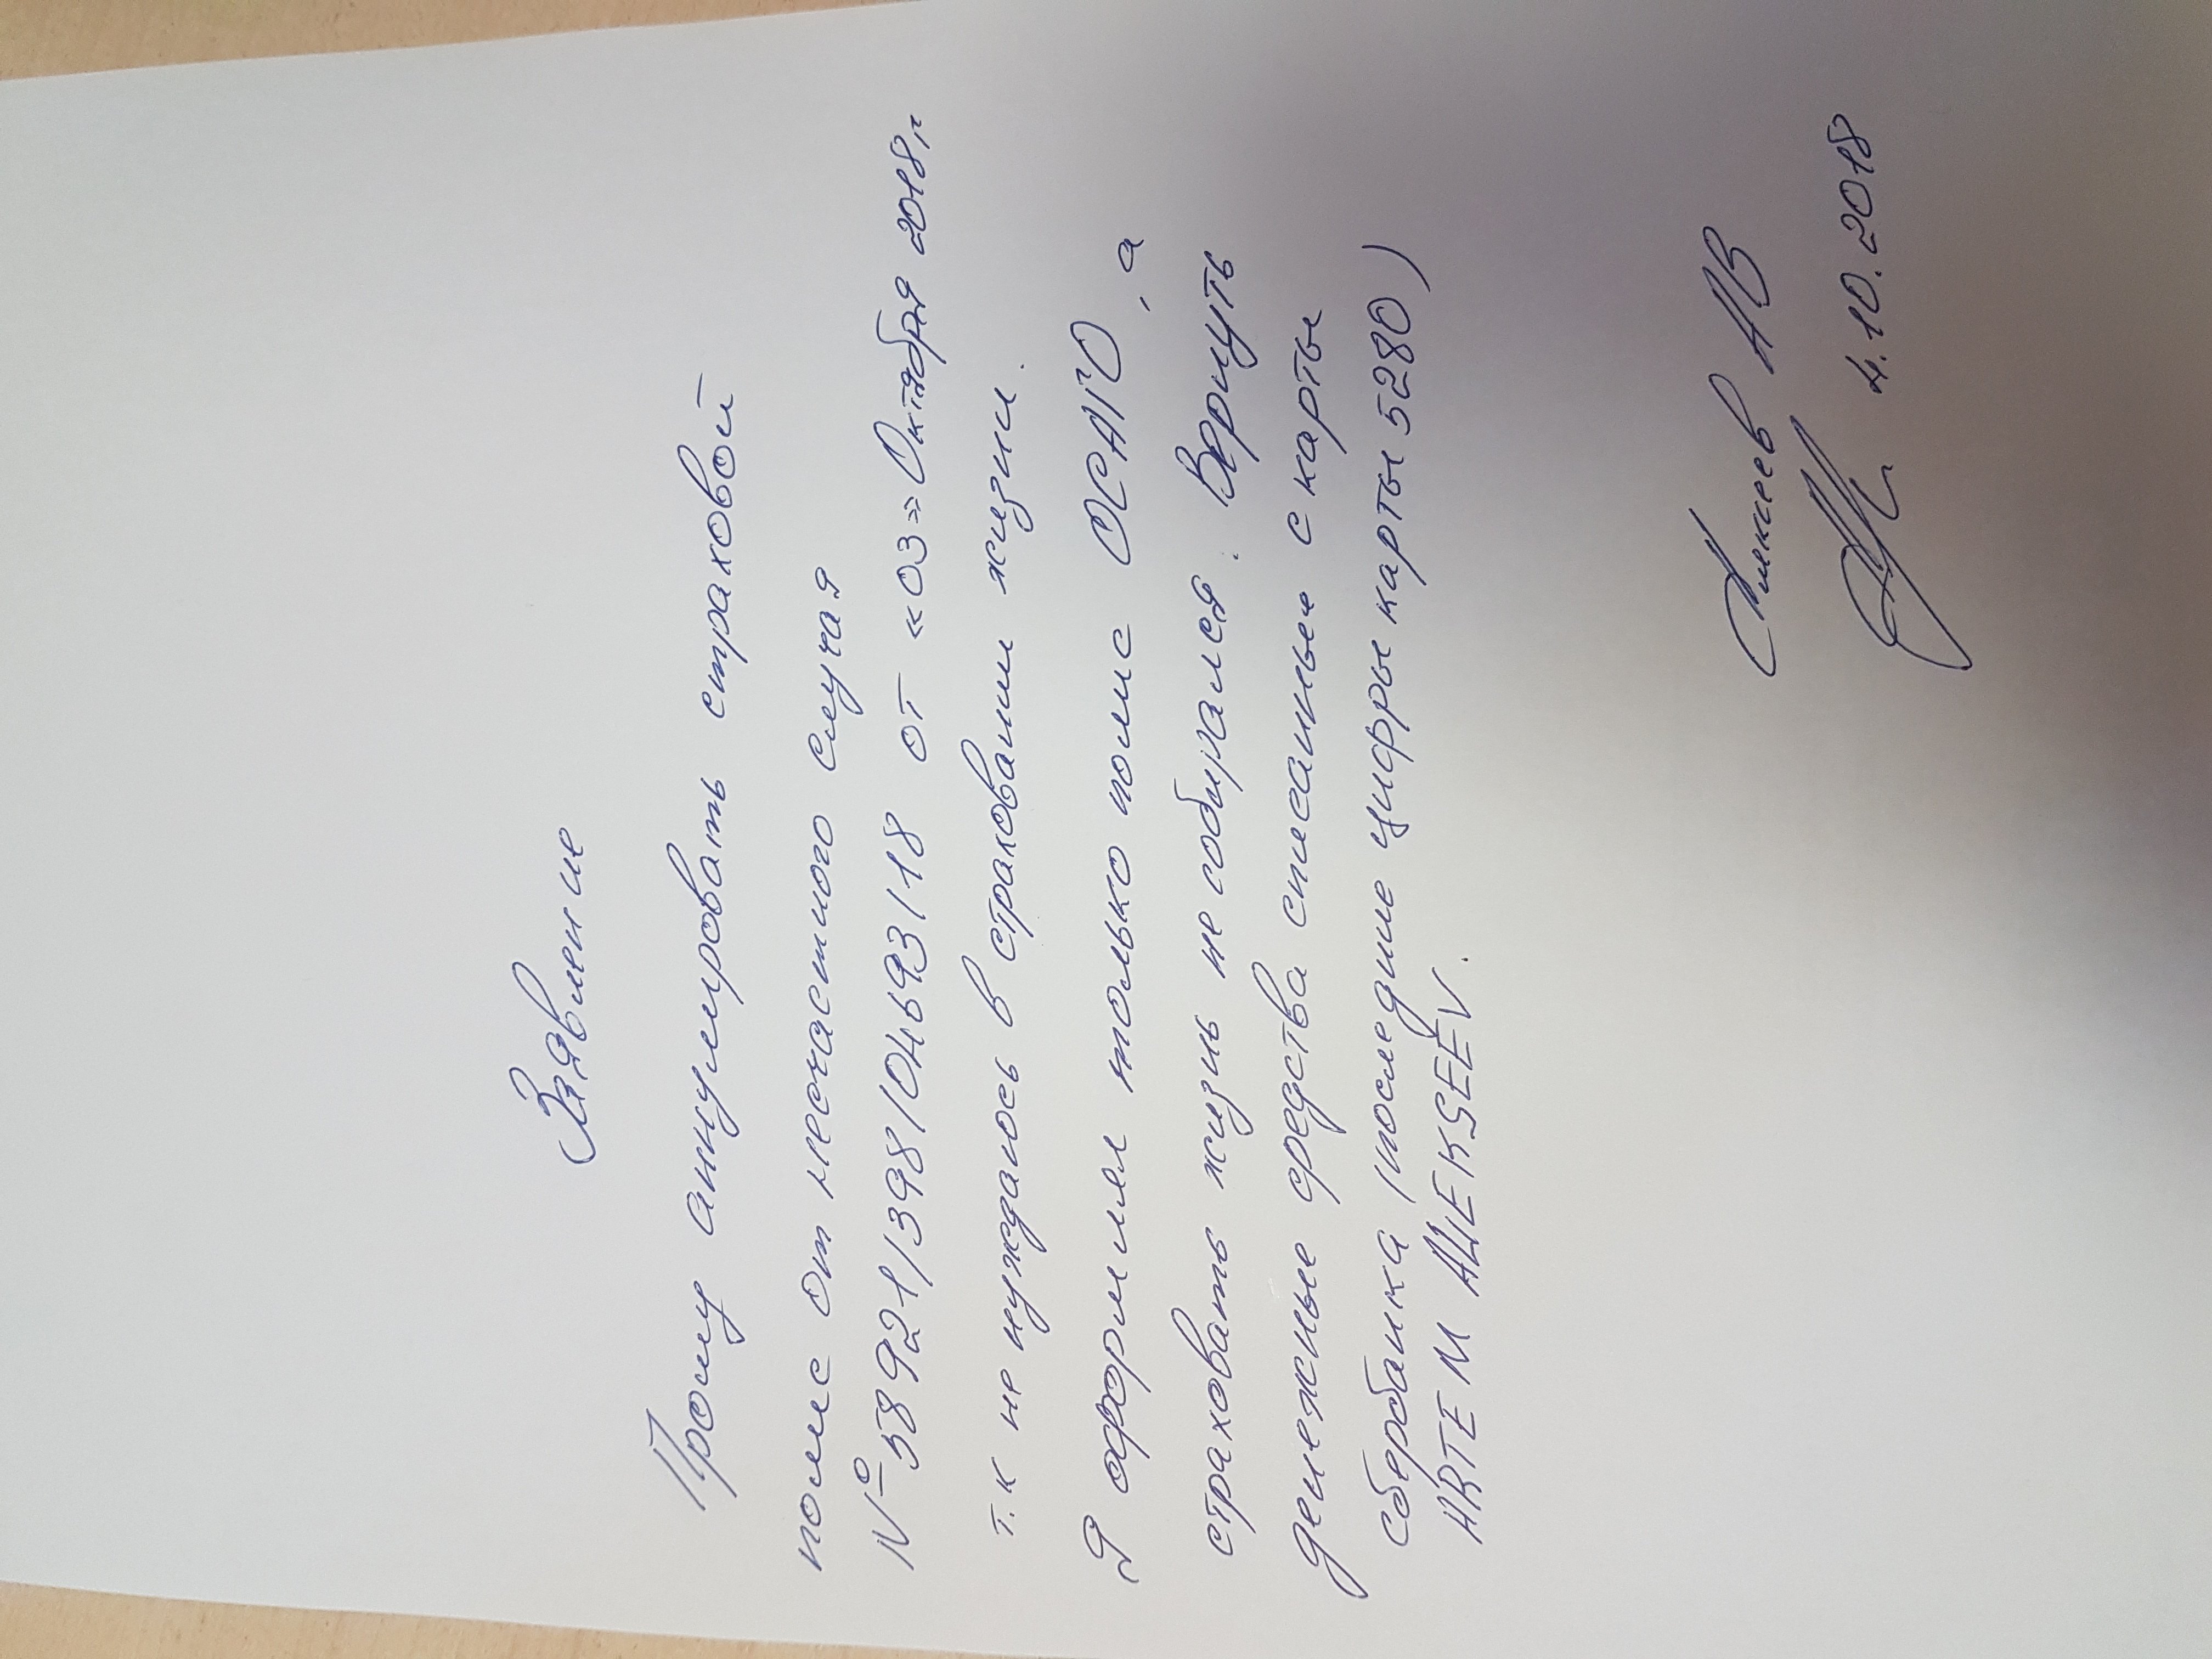 Заявление
Прошу аннулировать страховой
полис от несчастного случая
№ 58921/398/04693/18 от «03» Октября 2018г.
т.к не нуждаюсь в страховании жизни.
Я оформлял только полис ОСАГО, а
страховать жизнь не собирался. Вернуть
денежные средства списанные с карты
сбербанка (последние цифры карты 5280)
ARTEM ALIEKSEEV.
Алексеев АВ
4.10.2018